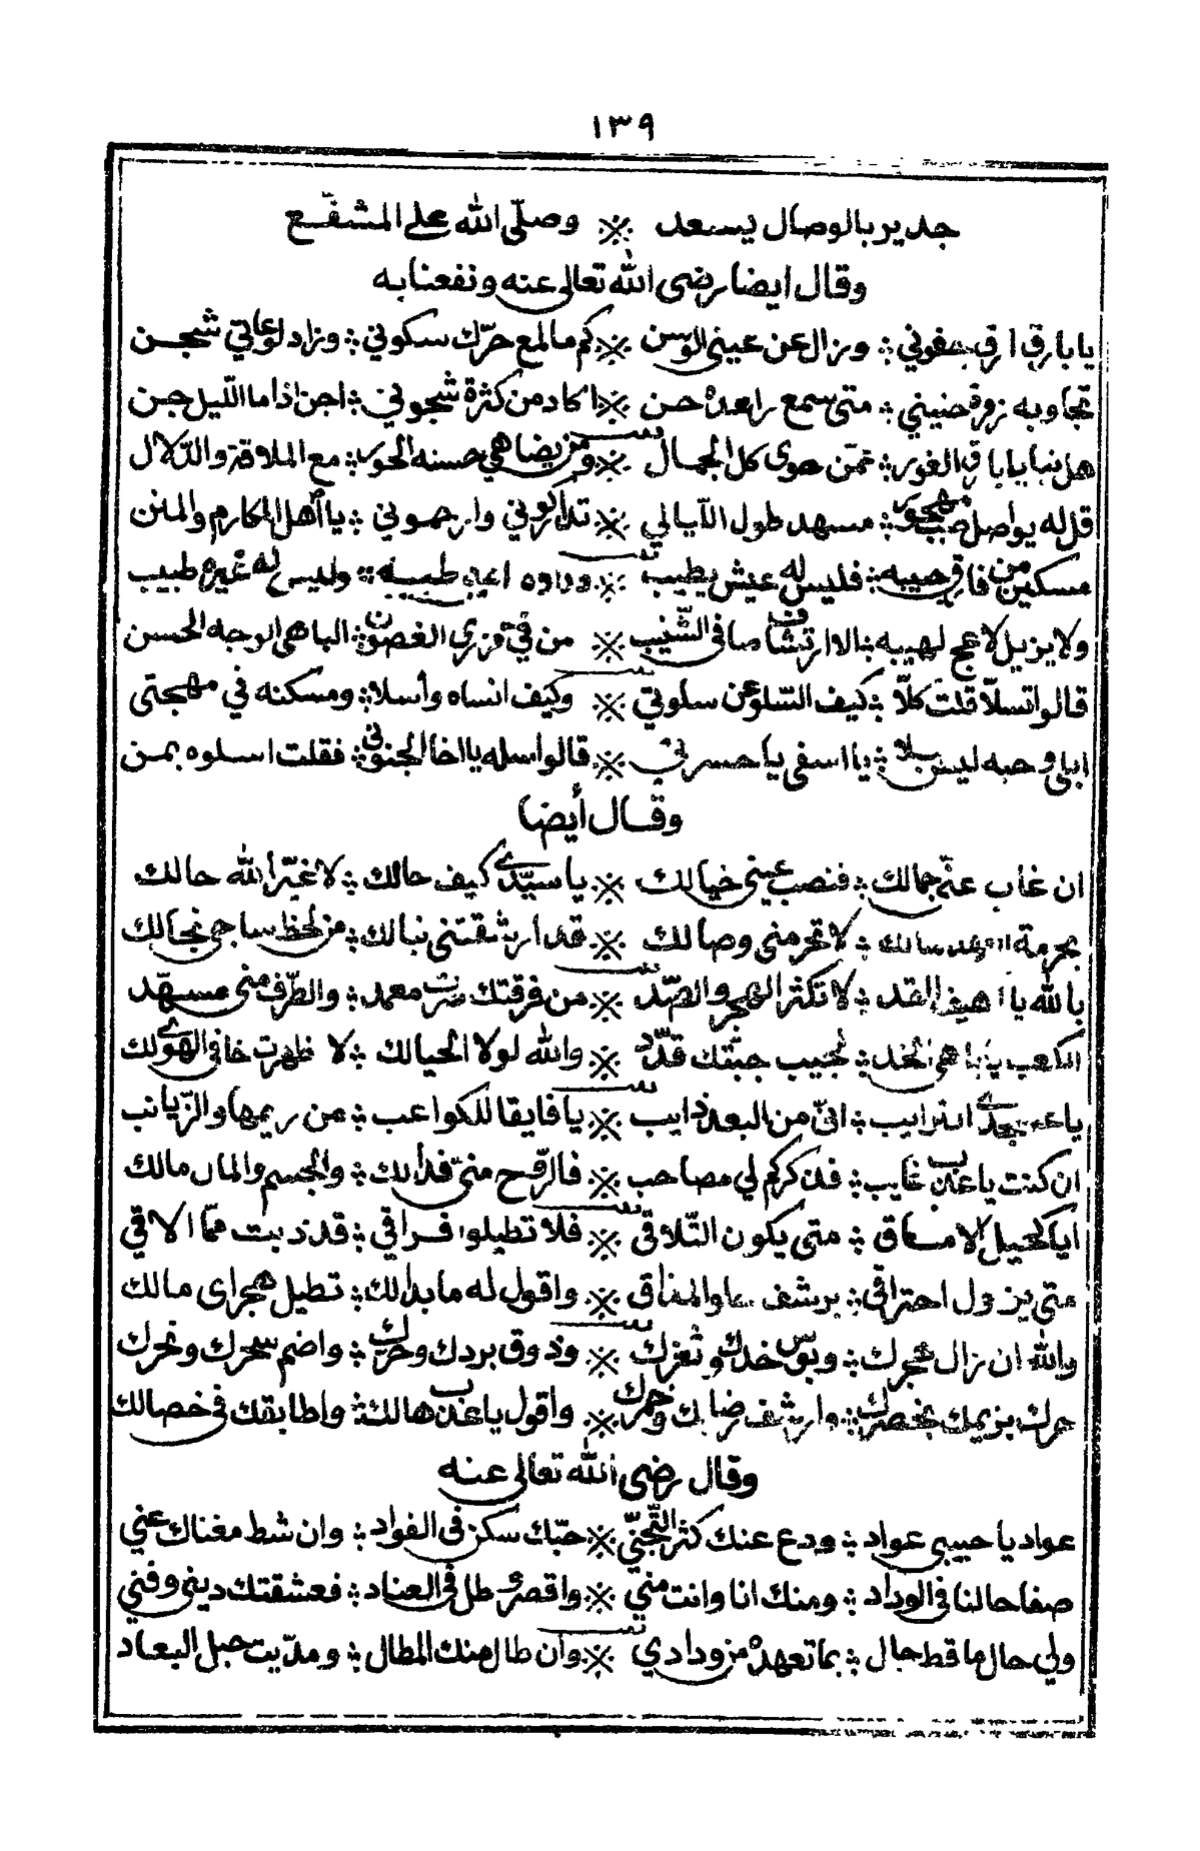 ١٣٩
جدير بالوصال يسعد ※ وصلّى الله على المشفّع
وقال ايضا رضى الله تعالى عنه ونفعنا به
يا بارق ارق جفوني ؞ وزال عن عيني الوسن ※ كم ما لمع حرّك سكوني ؞ وزاد لوعاتي شجن
تجاوبه زورة حنيني ؞ متى سمع راعده حن ※ اكاد من كثرة شجوني ؞ اجن اذا ما الليل جن
هل نبا يا بارق الغوير ؞ عمّن حوى كل الجمال ※ ومن يضاهي حسنه الحور ؞ مع الملاقة والدّلال
قل له يواصل صب مهجور ؞ مسهد طول الليالي ※ تداركوني وارحموني ؞ يا اهل المكارم والمنن
مسكين من فارق حبيبه ؞ فليس له عيش يطيب ※ وداوه اعيى طبيبه ؞ وليس له غيره طبيب
ولا يزيل لاعج لهيبه ؞ الا ارتشاف صافى الشّنيب ※ من في يزري الغصون ؞ الباهى الوجه الحسن
قالوا تسلّا قلت كلّا ؞ كيف السّلو عن سلوتي ※ وكيف انساه وأسلا ؞ ومسكنه في مهجتى
ابلى وحبه ليس يبلا ؞ يا اسفى يا حسرتي ※ قالوا اسله يا اخا الجنون ؞ فقلت اسلوه بمن
وقال أيضا
ان غاب عنّي جمالك ؞ فنصب عيني خيالك ※ يا سيّدي كيف حالك ؞ لا غيّر الله حالك
بحرمة سالك ؞ لا تحرمني وصالك ※ قد ارشقتني نبالك ؞ من لحظ ساجى نجالك
بالله يا اهيف القد ؞ لا تكثر الهجر والصّد ※ من فرقتك صرت معمد ؞ والطّرف منى مسهّد
يا باهى الخد ؞ لجيب حبّتك قدّد ※ والله لولا الحيالك ؞ لا ظهرت خافى الهوى لك
يا الترايب ؞ انّي من البعد ذايب ※ يا فايقا للكواعب ؞ عن ريمها والزّيانب
ان كنت يا عذب غايب ؞ فذكركم لي مصاحب ※ فالرّوح منّي فدا لك ؞ والجسم والمال مالك
أيا كحيل الاماق ؞ متى يكون التّلاقى ※ فلا تطيلوا فراقي ؞ قد ذبت ممّا الاقي
متى يزول احتراقي ؞ برشف حلو المذاق ※ واقول له ما بدا لك ؞ تطيل هجراى مالك
والله ان زال هجرك ؞ وبوس خدك وثغرك ※ وذوق بردك وحرّك ؞ واضم سحرك ونحرك
بزيمك بخصرك ؞ وارشف رضابك وخمرك ※ واقول يا عذب هالك ؞ واطابقك في خصالك
وقال رضى الله تعالى عنه
عواد يا حبيبي عواد ؞ ودع عنك كثر التّجنّي ※ حبّك سكن فى الفواد ؞ وان شط مغناك عني
صفا حالنا فى الوداد ؞ ومنك انا وانت مني ※ واقصر وطل فى العناد ؞ فعشقتك ديني وفني
ولي حال ما قط حال ؞ بما تعهده من ودادي ※ وان طال منك المطال ؞ ومدّيت حبل البعاد